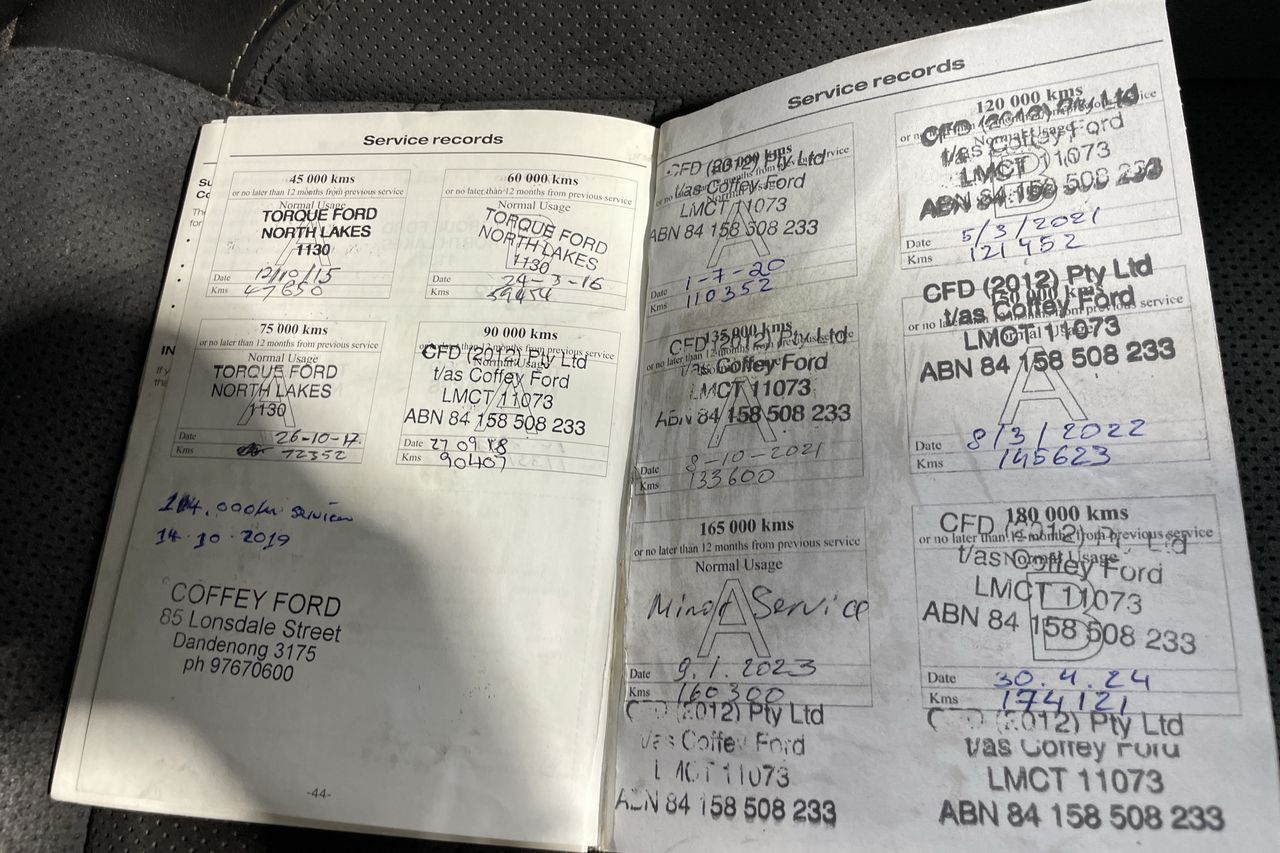 Service records
45 000 kms
or no later than 12 months from previous service
Normal Usage
TORQUE FORD
NORTH LAKES
1130
A
Date 12/10/15
Kms 47650
60 000 kms
or no later than 12 months from previous service
Normal Usage
TORQUE FORD
NORTH LAKES
1130
B
Date 24-3-16
Kms
75 000 kms
or no later than 12 months from previous service
Normal Usage
TORQUE FORD
NORTH LAKES
1130
A
Date 26-10-17
Kms 72352
90 000 kms
or no later than 12 months from previous service
Normal Usage
CFD (2012) Pty Ltd
t/as Coffey Ford
LMCT 11073
ABN 84 158 508 233
Date 27 09 18
Kms 90407
service
14-10-2019
COFFEY FORD
85 Lonsdale Street
Dandenong 3175
ph 97670600
-44-
Service records
CFD (2012) Pty Ltd
t/as Coffey Ford
LMCT 11073
ABN 84 158 508 233
A
Date 1-7-20
Kms 110352
120 000 kms
or no later than 12 months from previous service
Normal Usage
CFD (2012) Pty Ltd
t/as Coffey Ford
LMCT 11073
ABN 84 158 508 233
B
Date 5/3/2021
Kms 121452
135 000 kms
or no later than 12 months from previous service
CFD (2012) Pty Ltd
t/as Coffey Ford
LMCT 11073
ABN 84 158 508 233
A
Date 8-10-2021
Kms 133600
CFD (2012) Pty Ltd
150 000 kms
t/as Coffey Ford
LMCT 11073
ABN 84 158 508 233
A
Date 8/3/2022
Kms 145623
165 000 kms
or no later than 12 months from previous service
Normal Usage
A
Minor Service
Date 9.1.2023
Kms 160300
CFD (2012) Pty Ltd
t/as Coffey Ford
LMCT 11073
ABN 84 158 508 233
180 000 kms
or no later than 12 months from previous service
Normal Usage
CFD (2012) Pty Ltd
t/as Coffey Ford
LMCT 11073
ABN 84 158 508 233
B
Date 30.4.24
Kms 174121
CFD (2012) Pty Ltd
t/as Coffey Ford
LMCT 11073
ABN 84 158 508 233